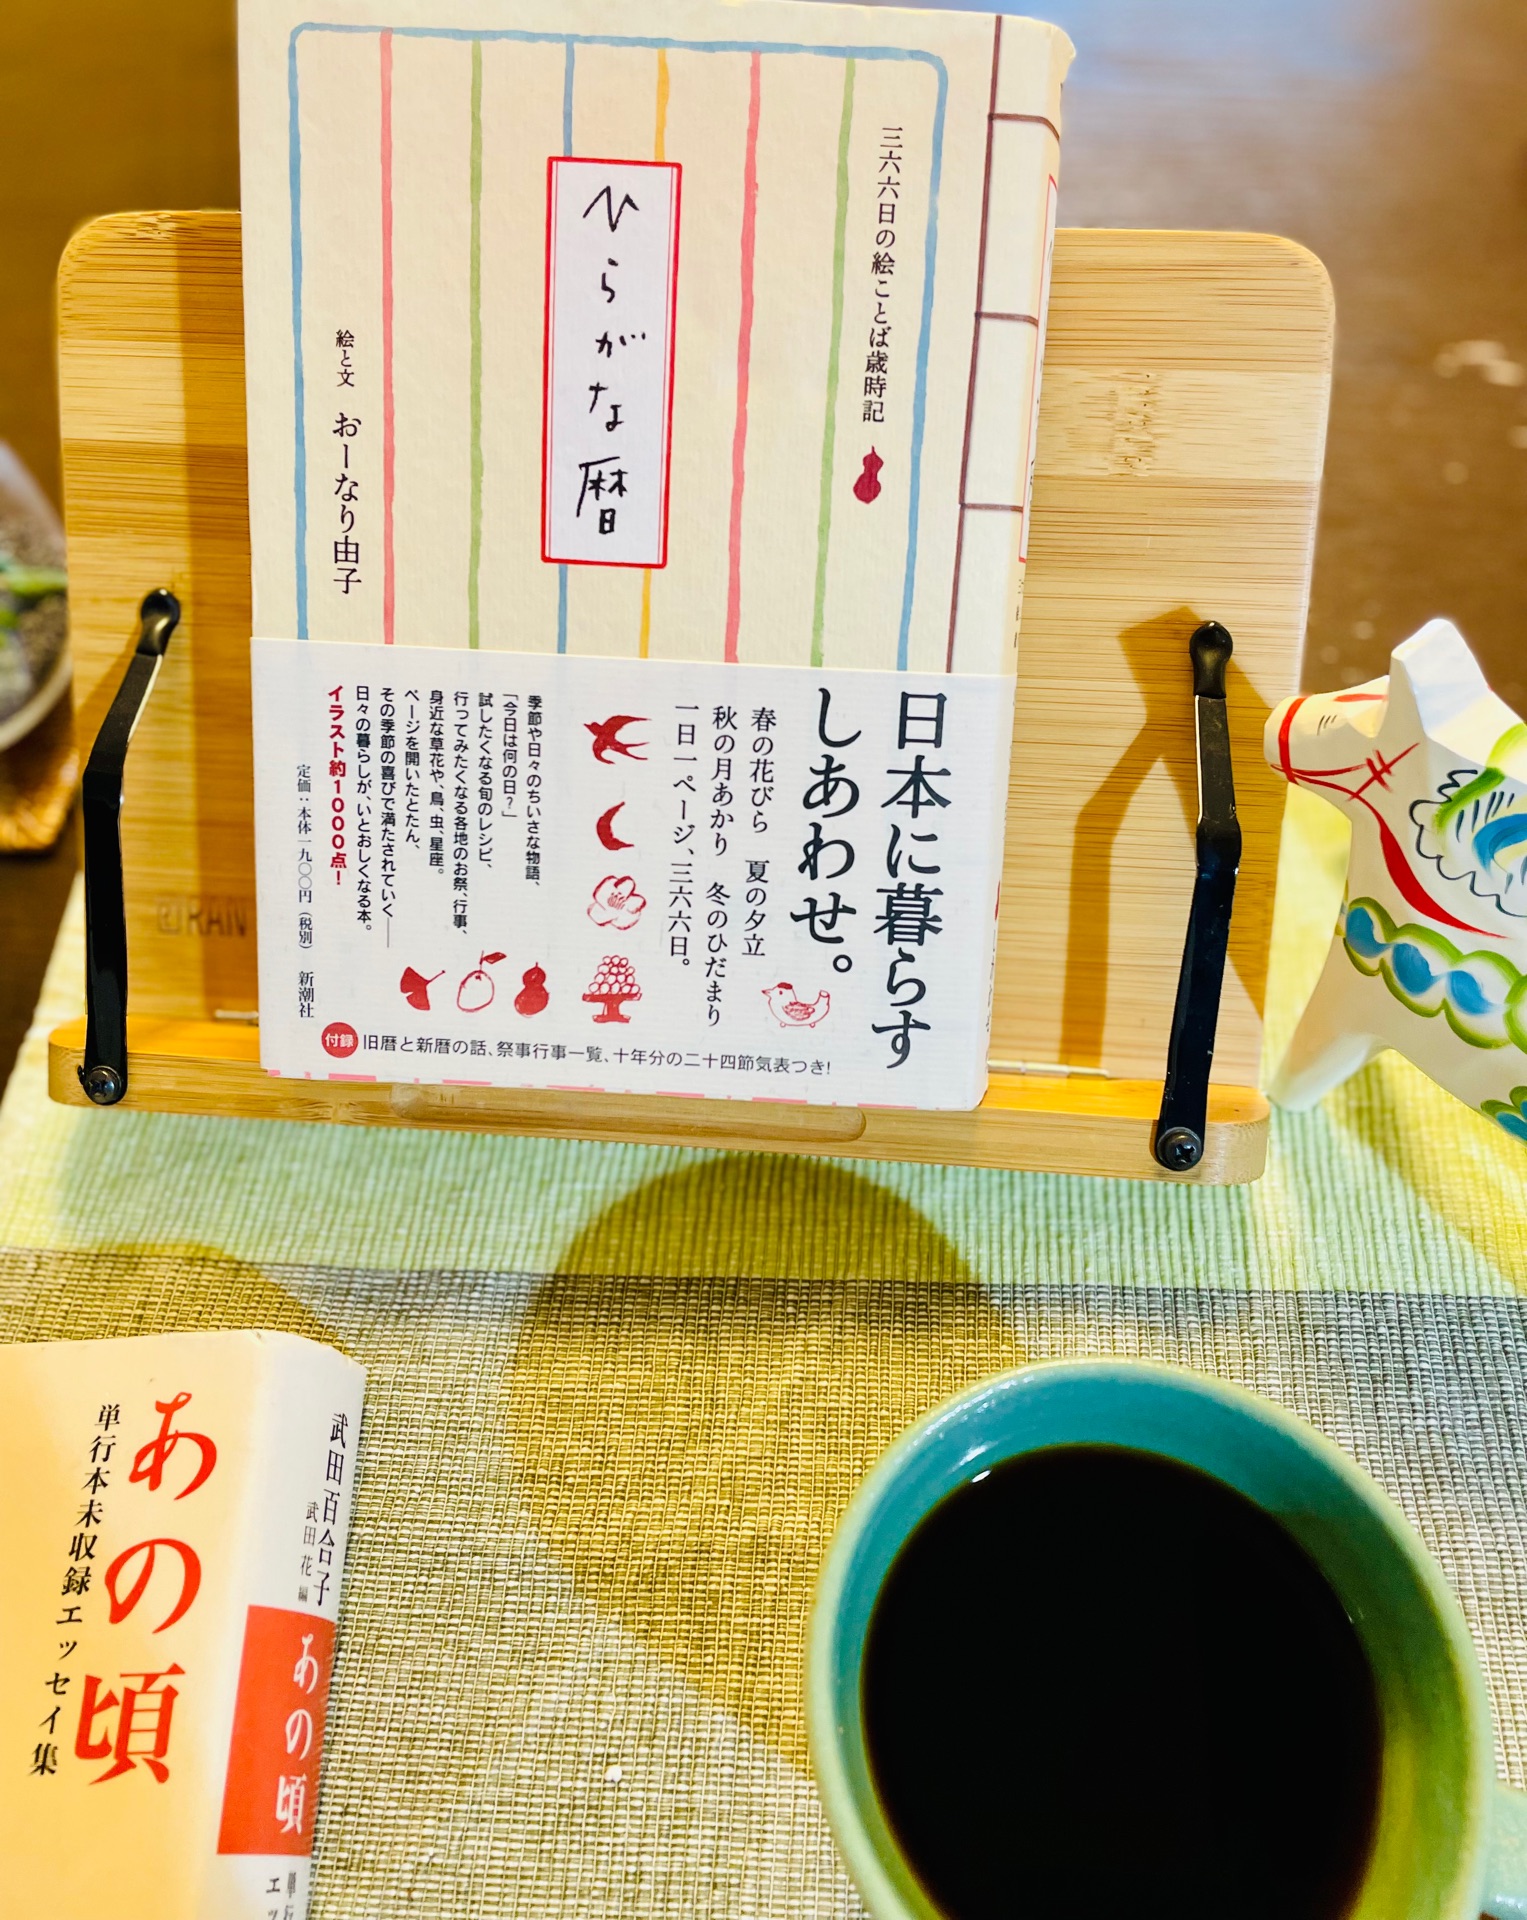 三六六日の絵ことば歳時記
ひらがな暦
絵と文 おーなり由子
日本に暮らす
しあわせ。
春の花びら 夏の夕立
秋の月あかり 冬のひだまり
一日一ページ、三六六日。
季節や日々のちいさな物語、
「今日は何の日?」
試したくなる旬のレシピ、
行ってみたくなる各地のお祭、行事、
身近な草花や、鳥、虫、星座。
ページを開いたとたん、
その季節の喜びで満たされていく──
日々の暮らしが、いとおしくなる本。
イラスト約1000点!
定価:本体一九〇〇円(税別) 新潮社
付録 旧暦と新暦の話、祭事行事一覧、十年分の二十四節気表つき!
RAN
武田百合子
武田花 編
あの頃
単行
エッ
あの頃
単行本未収録エッセイ集